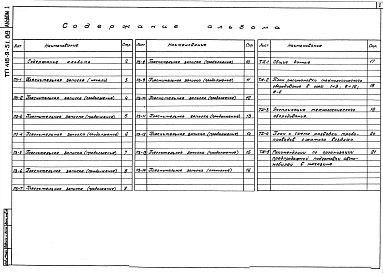 Содержание альбома
ТП 416-9-51.89 Альбом 1
2
Лист Наименование Стр.
Содержание альбома 2
ПЗ-1 Пояснительная записка (начало) 3
ПЗ-2 Пояснительная записка (продолжение) 4
ПЗ-3 Пояснительная записка (продолжение) 5
ПЗ-4 Пояснительная записка (продолжение) 6
ПЗ-5 Пояснительная записка (продолжение) 7
ПЗ-6 Пояснительная записка (продолжение) 8
ПЗ-7 Пояснительная записка (продолжение) 9
Лист Наименование Стр.
ПЗ-8 Пояснительная записка (продолжение) 10
ПЗ-9 Пояснительная записка (продолжение) 11
ПЗ-10 Пояснительная записка (продолжение) 12
ПЗ-11 Пояснительная записка (продолжение) 13
ПЗ-12 Пояснительная записка (продолжение) 14
ПЗ-13 Пояснительная записка (продолжение) 15
ПЗ-14 Пояснительная записка (окончание) 16
Лист Наименование Стр.
ТХ-1 Общие данные 17
ТХ-2 План расстановки технологического
оборудования в осях 18
ТХ-3 Экспликация технологического
оборудования 19
ТХ-4 План и схема разводки трубо-
проводов сжатого воздуха 20
ТХ-5 Рекомендации по организации
предпродажной подготовки авто-
мобилей в магазине 21